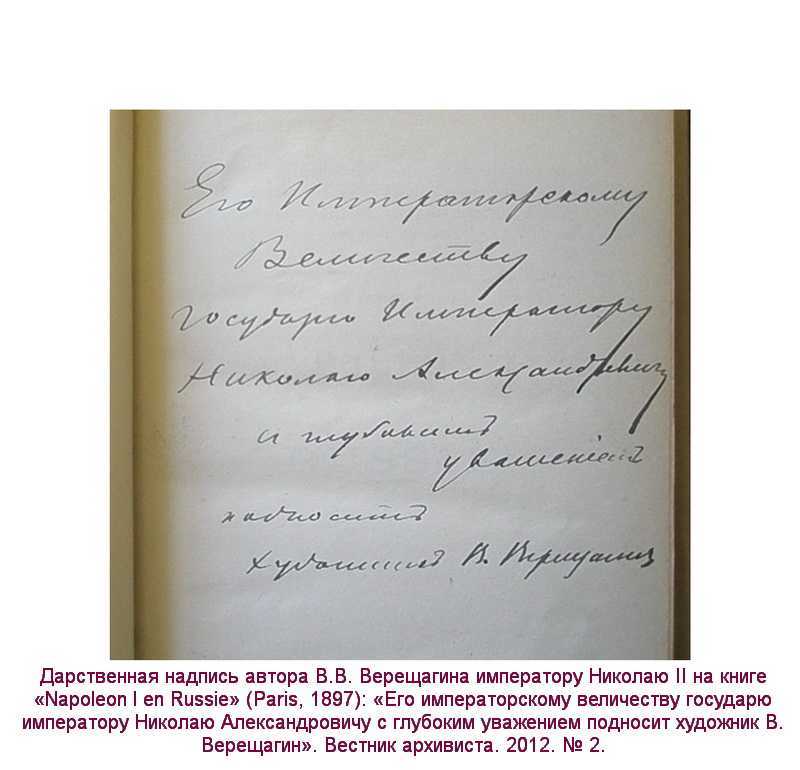 Его Императорскому
Величеству
Государю Императору
Николаю Александровичу
с глубокимъ
уваженіемъ
подноситъ
художникъ В. Верещагинъ
Дарственная надпись автора В.В. Верещагина императору Николаю II на книге
«Napoleon I en Russie» (Paris, 1897): «Его императорскому величеству государю
императору Николаю Александровичу с глубоким уважением подносит художник В.
Верещагин». Вестник архивиста. 2012. № 2.